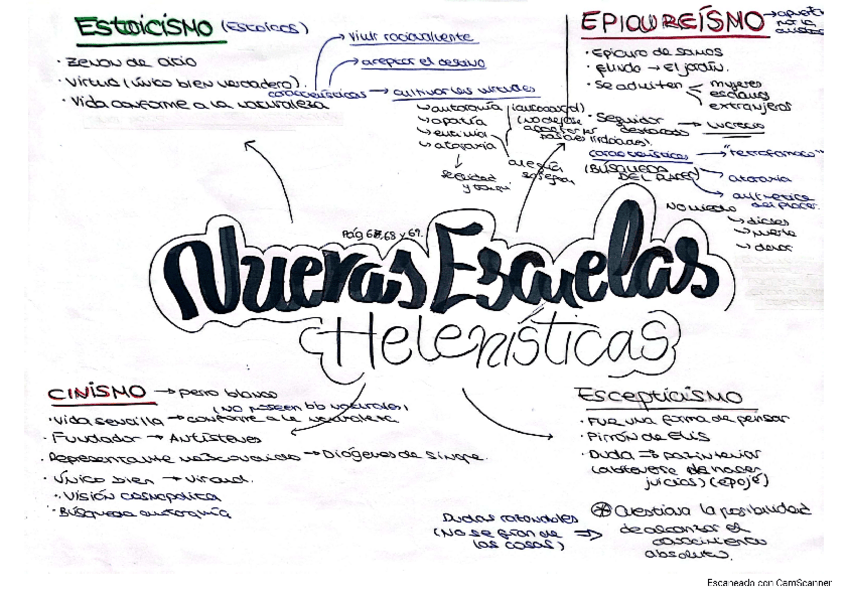 ESTOICISMO (ESTOICOS)
· Zenon de Citio
· Virtud (único bien verdadero).
características
· Vida conforme a la naturaleza
→ vivir racionalmente
→ aceptar el destino
→ cultivar las virtudes
↳ autarquía
↳ apatía (No dejarse
↳ ataraxia
↳ alegría
EPICUREÍSMO
· Epicuro de Samos
· fundó → el jardín.
· Se admiten → mujeres
esclavos
extranjeros
· Seguidor destacado → Lucrecio
características → "tetrafármaco"
(BÚSQUEDA DEL PLACER)
→ ataraxia
→ aritmética del placer.
No miedo
↳ dioses
↳ muerte
↳ dolor
Pág 67, 68 y 69.
Nuevas Escuelas
Helenísticas
CINISMO → perro blanco
· Vida sencilla → conforme a la naturaleza
· Fundador → Antístenes
· Representante → Diógenes de Sinope.
· Único bien → Virtud.
· Visión cosmopolita
· Búsqueda autarquía
Escepticismo
· Fue una forma de pensar
· Pirrón de Elis
· Duda ⇒ paz interior
(abstenerse de hacer
juicios) (epojé)
Dudas razonables
(No se fían de
las cosas) ⇒
* Cuestiona la posibilidad
de alcanzar el
conocimiento
absoluto.
Escaneado con CamScanner